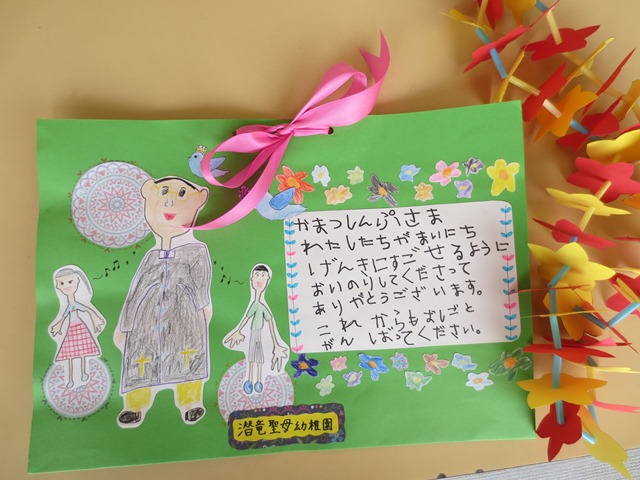 かまつしんぷさま
わたしたちがまいにち
げんきにすごせるように
おいのりしてくださって
ありがとうございます。
これからもおしごと
がんばってください。
潜竜聖母幼稚園